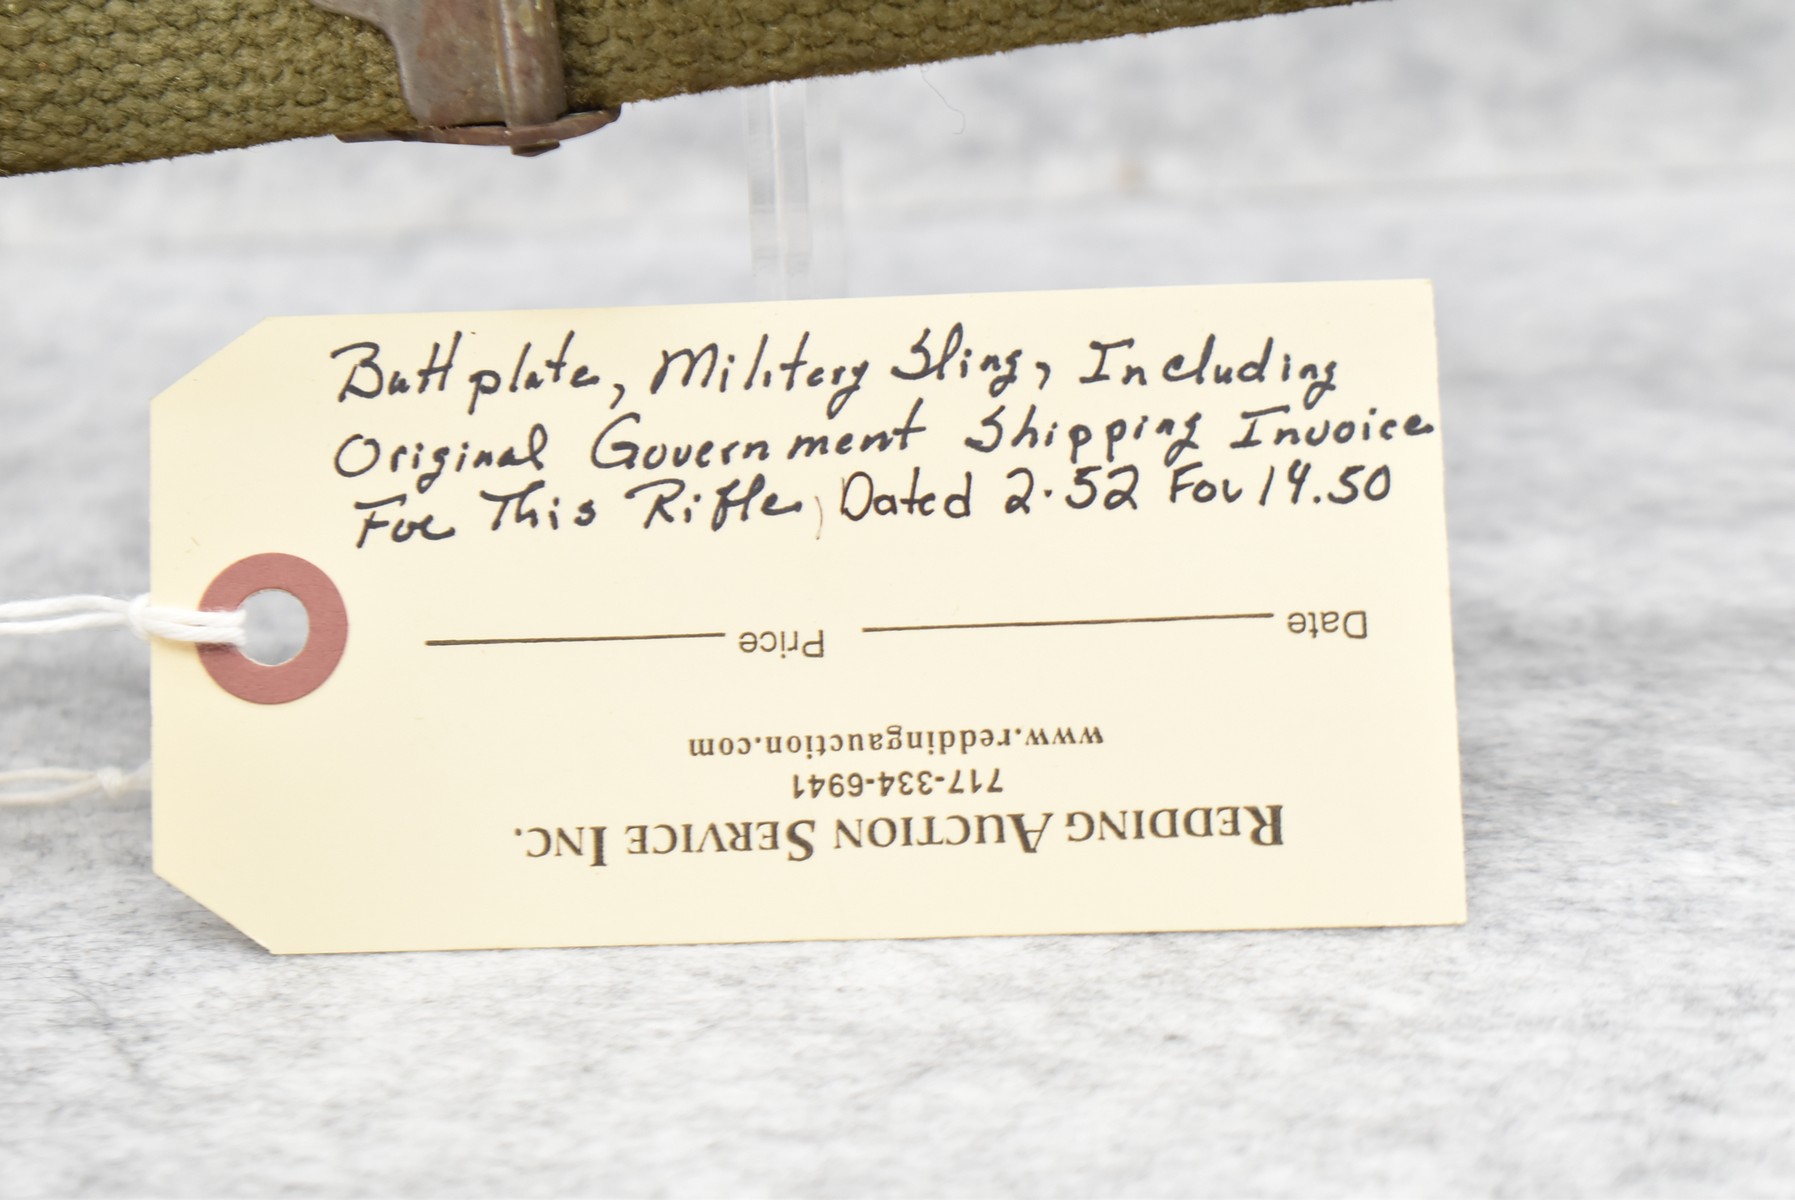 Buttplate, Military Sling, Including
Original Government Shipping Invoice
For This Rifle, Dated 2·52 For 14.50
Date Price
www.reddingauction.com
717-334-6941
REDDING AUCTION SERVICE INC.